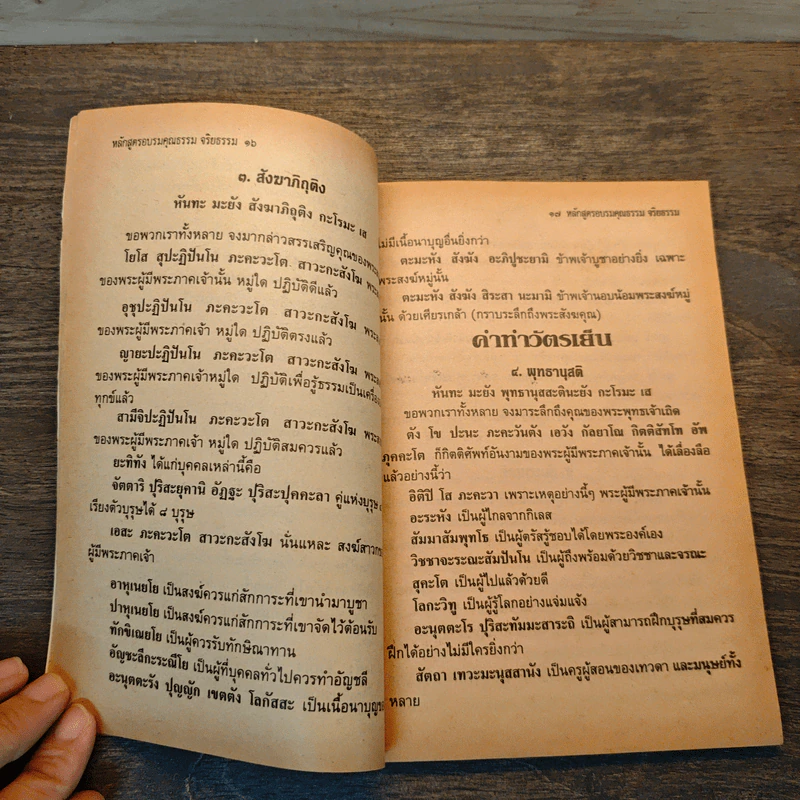 หลักสูตรอบรมคุณธรรม จริยธรรม ๑๖
๓. สังฆาภิถุติง
หันทะ มะยัง สังฆาภิถุติง กะโรมะ เส
ขอพวกเราทั้งหลาย จงมากล่าวสรรเสริญคุณของพระ
โยโส สุปะฏิปันโน ภะคะวะโต สาวะกะสังโฆ
ของพระผู้มีพระภาคเจ้านั้น หมู่ใด ปฏิบัติดีแล้ว
อุชุปะฏิปันโน ภะคะวะโต สาวะกะสังโฆ
ของพระผู้มีพระภาคเจ้า หมู่ใด ปฏิบัติตรงแล้ว
ญายะปะฏิปันโน ภะคะวะโต สาวะกะสังโฆ
ของพระผู้มีพระภาคเจ้าหมู่ใด ปฏิบัติเพื่อรู้ธรรมเป็นเครื่อง
ทุกข์แล้ว
สามีจิปะฏิปันโน ภะคะวะโต สาวะกะสังโฆ
ของพระผู้มีพระภาคเจ้า หมู่ใด ปฏิบัติสมควรแล้ว
ยะทิทัง ได้แก่บุคคลเหล่านี้คือ
จัตตาริ ปุริสะยุคานิ อัฏฐะ ปุริสะปุคคะลา คู่แห่งบุรุษ ๔
เรียงตัวบุรุษได้ ๘ บุรุษ
เอสะ ภะคะวะโต สาวะกะสังโฆ นั่นแหละ สงฆ์สาวก
ผู้มีพระภาคเจ้า
อาหุเนยโย เป็นสงฆ์ควรแก่สักการะที่เขานำมาบูชา
ปาหุเนยโย เป็นสงฆ์ควรแก่สักการะที่เขาจัดไว้ต้อนรับ
ทักขิเณยโย เป็นผู้ควรรับทักษิณาทาน
อัญชะลีกะระณีโย เป็นผู้ที่บุคคลทั่วไปควรทำอัญชลี
อะนุตตะรัง ปุญญัก เขตตัง โลกัสสะ เป็นเนื้อนาบุญ
๑๗ หลักสูตรอบรมคุณธรรม จริยธรรม
ไม่มีเนื้อนาบุญอื่นยิ่งกว่า
ตะมะหัง สังฆัง อะภิปูชะยามิ ข้าพเจ้าบูชาอย่างยิ่ง เฉพาะ
พระสงฆ์หมู่นั้น
ตะมะหัง สังฆัง สิระสา นะมามิ ข้าพเจ้านอบน้อมพระสงฆ์หมู่
นั้น ด้วยเศียรเกล้า (กราบระลึกถึงพระสังฆคุณ)
คำทำวัตรเย็น
๔. พุทธานุสติ
หันทะ มะยัง พุทธานุสสะตินะยัง กะโรมะ เส
ขอพวกเราทั้งหลาย จงมาระลึกถึงคุณของพระพุทธเจ้าเถิด
ตัง โข ปะนะ ภะคะวันตัง เอวัง กัลยาโณ กิตติสัทโท อัพ
ภุคคะโต ก็กิตติศัพท์อันงามของพระผู้มีพระภาคเจ้านั้น ได้เลื่องลือ
แล้วอย่างนี้ว่า
อิติปิ โส ภะคะวา เพราะเหตุอย่างนี้ๆ พระผู้มีพระภาคเจ้านั้น
อะระหัง เป็นผู้ไกลจากกิเลส
สัมมาสัมพุทโธ เป็นผู้ตรัสรู้ชอบได้โดยพระองค์เอง
วิชชาจะระณะสัมปันโน เป็นผู้ถึงพร้อมด้วยวิชชาและจรณะ
สุคะโต เป็นผู้ไปแล้วด้วยดี
โลกะวิทู เป็นผู้รู้โลกอย่างแจ่มแจ้ง
อะนุตตะโร ปุริสะทัมมะสาระถิ เป็นผู้สามารถฝึกบุรุษที่สมควร
ฝึกได้อย่างไม่มีใครยิ่งกว่า
สัตถา เทวะมะนุสสานัง เป็นครูผู้สอนของเทวดา และมนุษย์ทั้ง
หลาย